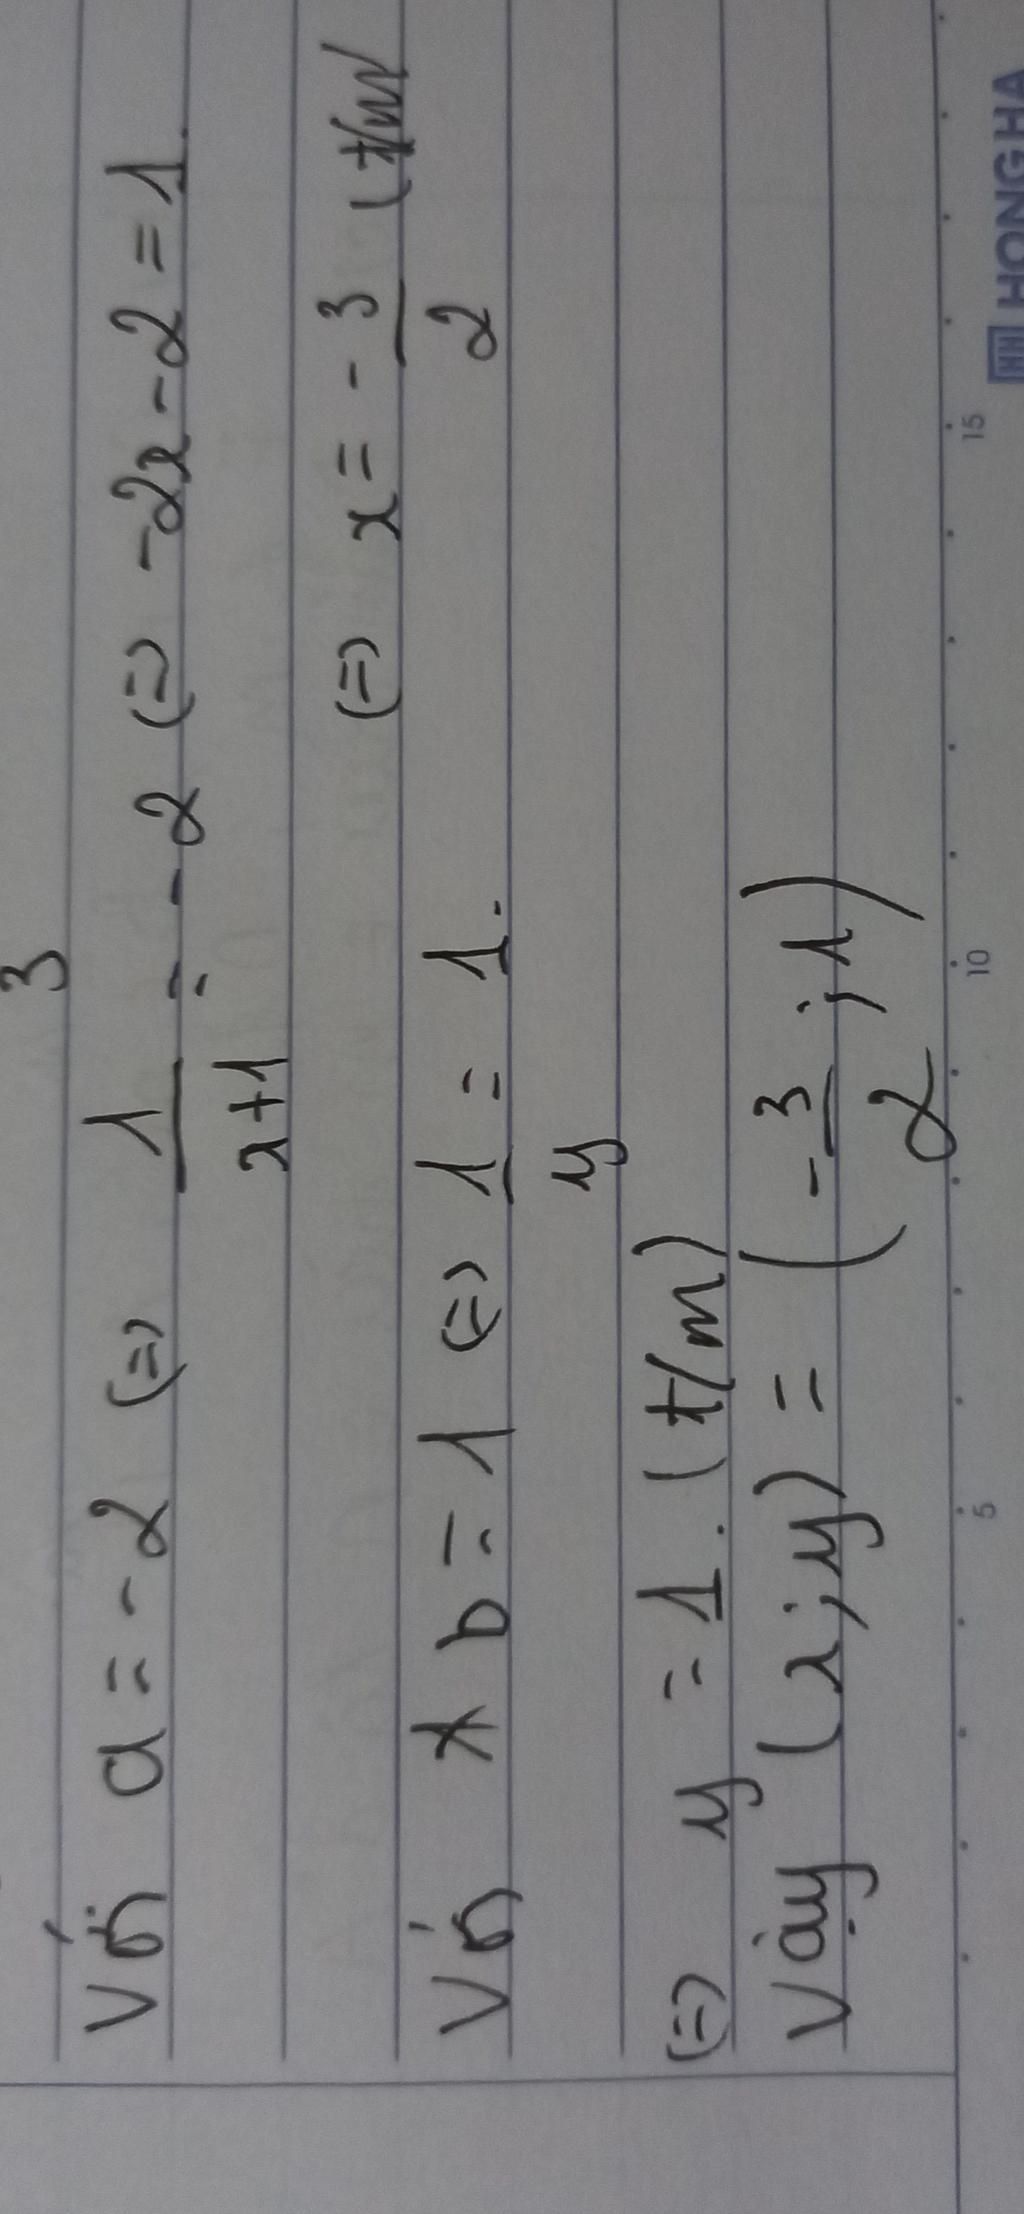 3
Với a = -2 (=) 1/(x+1) = -2 (=) -2x - 2 = 1.
(=) x = - 3/2 (t/m)
Với * b = 1 (=) 1/y = 1.
(=) y = 1. (t/m)
Vậy (x;y) = ( - 3/2 ; 1 )
5 10 15 HH HONG HA